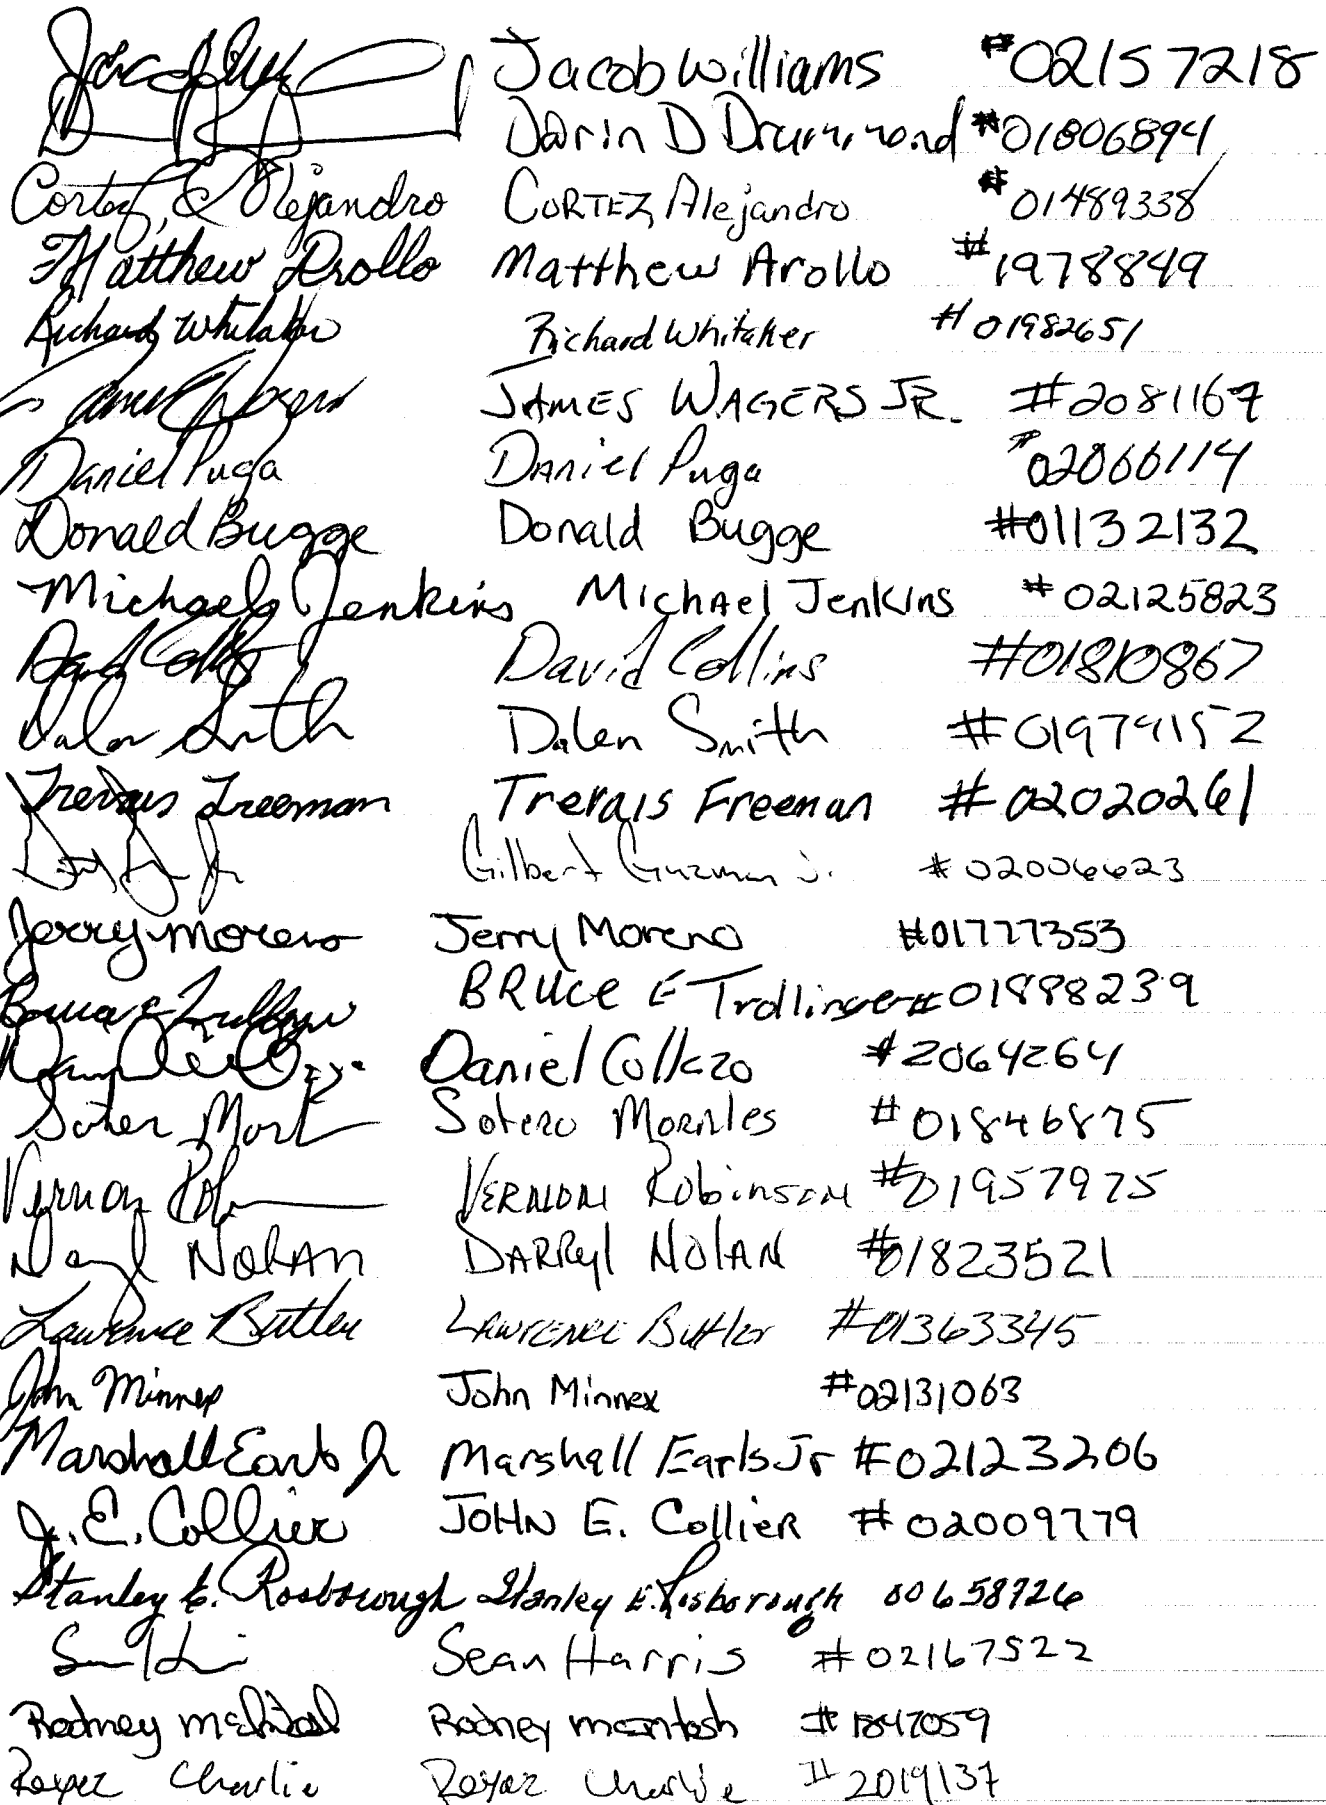 Jacob Williams #02157218
Darin D Drummond #01806894
Cortez, Alejandro CORTEZ, Alejandro #01489338
Matthew Arollo Matthew Arollo #1978849
Richard Whitaker Richard Whitaker #01982651
JAMES WAGERS JR. #2081167
Daniel Puga Daniel Puga #02066114
Donald Bugge Donald Bugge #01132132
Michael Jenkins Michael Jenkins #02125823
David Collins David Collins #01810867
Dalen Smith Dalen Smith #01979152
Trevais Freeman Trevais Freeman #02020261
Gilbert Guzman Jr. #02006623
Jerry Moreno Jerry Moreno #01777353
Bruce E Trollinger BRUCE E Trollinger #01898239
Daniel Collazo #2064264
Sotero Morales #01846875
Vernon VERNON Robinson #01957975
Darryl NOLAN DARRyl NOLAN #01823521
Lawrence Butler LAWRENCE Butler #01363345
John Minnex John Minnex #02131063
Marshall Earls Jr Marshall Earls Jr #02123206
J. E. Collier JOHN E. Collier #02009779
Stanley E. Rosborough Stanley E. Rosborough 00658726
Sean Harris #02167522
Rodney McIntosh Rodney mcintosh #1847059
Charlie Charlie #2019137